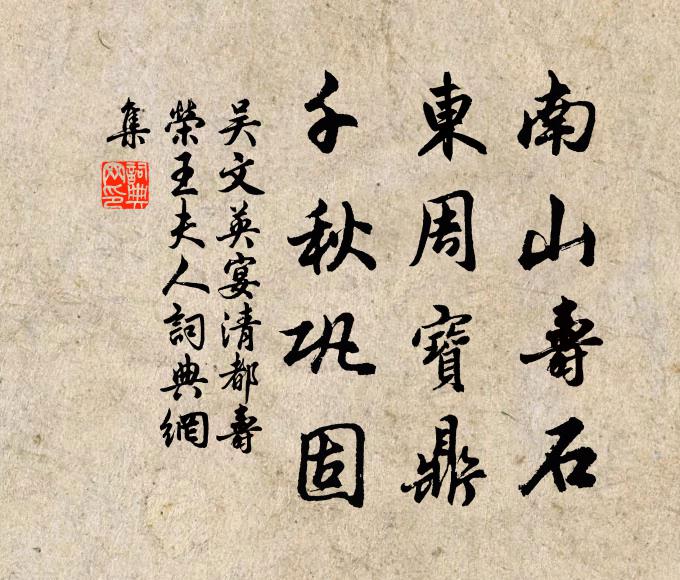 南山壽石
東周寶鼎
千秋巩固
吴文英宴清都壽
榮王夫人詞典網
集
詞典網印